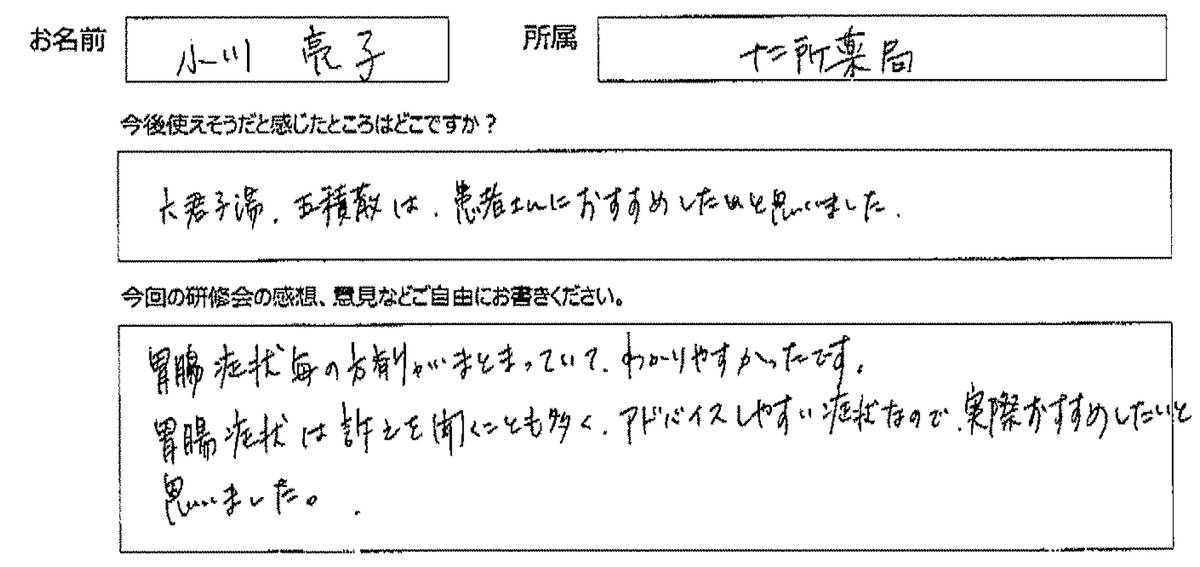 お名前 小川 亮子 所属 十二所薬局
今後使えそうだと感じたところはどこですか？
六君子湯、五積散は、患者さんにおすすめしたいと思いました。
今回の研修会の感想、意見などご自由にお書きください。
胃腸症状毎の方剤がまとまっていて、わかりやすかったです。
胃腸症状は訴えを聞くことも多く、アドバイスしやすい症状なので、実際おすすめしたいと
思いました。